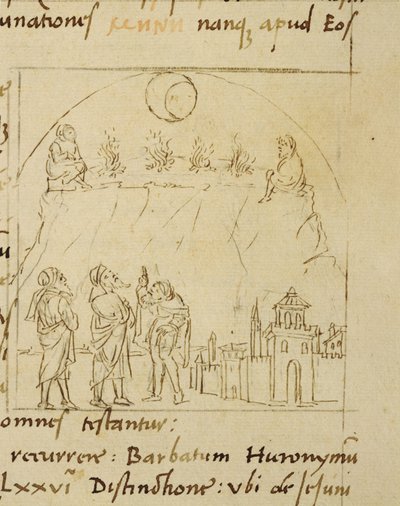 unationes nanqꝫ apud Eos
omnes testantur:
recurrere: Barbatum Hieronymũ
LXXVĩ Distinctione: ubi de Jejuni